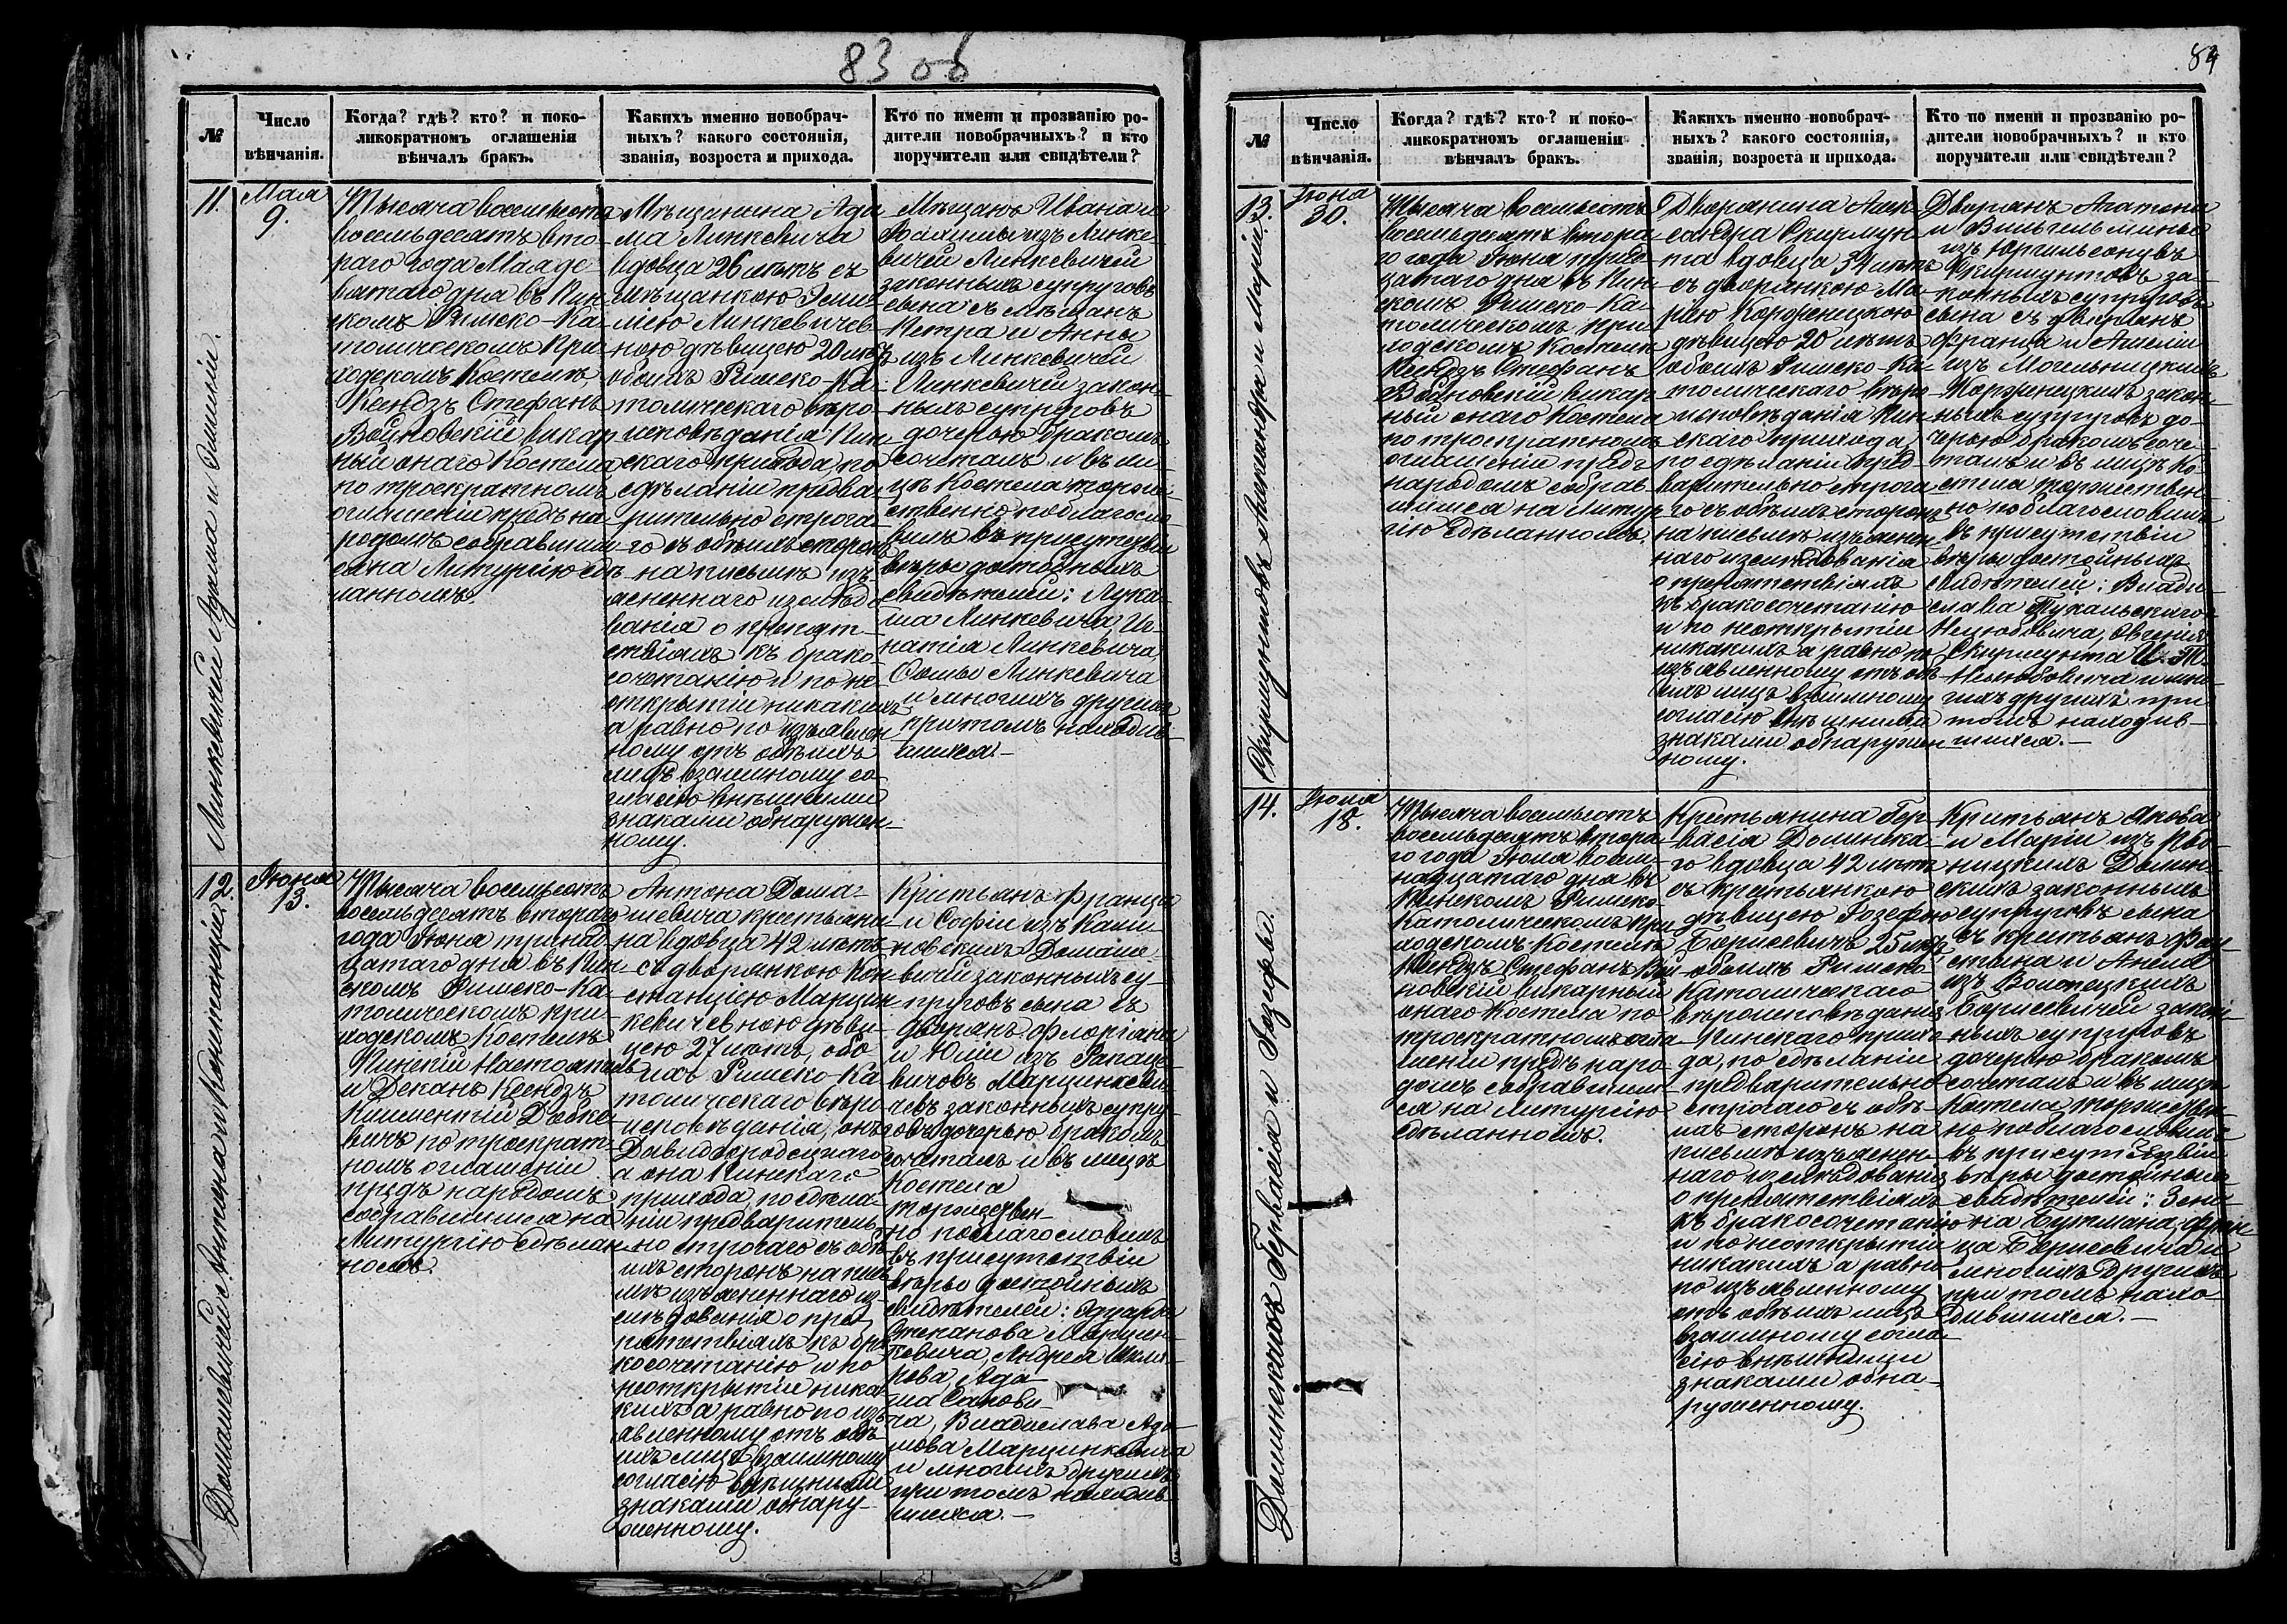 83 об
№
Число
вѣнчанія.
Когда? гдѣ? кто? и поко-
ликократномъ оглашеніи
вѣнчалъ бракъ.
Какихъ именно новобрач-
ныхъ? какого состоянія,
званія, возроста и прихода.
Кто по имени и прозванію ро-
дители новобрачныхъ? и кто
поручители или свидѣтели?
11.
Линкевичей Адама и Эмиліи.
Мая
9.
Тысяча восемьсотъ
восемьдесятъ вто-
раго года Мая де-
вятаго дня въ Пин-
скомъ Римско-Ка-
толическомъ При-
ходскомъ Костелѣ,
Ксендзъ Стефанъ
Войновскій викар-
ный онаго Костела
по троекратномъ
оглашеніи предъ на-
родомъ собравшим-
ся на Литургію сдѣ-
ланномъ.
Мѣщанина Ада-
ма Линкевича
вдовца 26 лѣтъ съ
мѣщанкою Эми-
ліею Линкевичев-
ною дѣвицею 20 лѣтъ
обоихъ Римско-Ка-
толическаго вѣро-
исповѣданія Пин-
скаго прихода, по
сдѣланіи предва-
рительно строга-
го съ обѣихъ сторонъ
на письмѣ изъ-
ясненнаго изслѣдо-
ванія о препят-
ствіяхъ къ брако-
сочетанію и по не-
открытіи никакихъ
а равно по изъявлен-
ному отъ обѣихъ
лицъ взаимному со-
гласію внѣшними
знаками обнаружен-
ному.
Мѣщанъ Ивана и
изъ Линке-
вичей Линкевичей
законныхъ супруговъ
сына съ мѣщанъ
Петра и Анны
изъ Линкевичей
Линкевичей закон-
ныхъ супруговъ
дочерью бракомъ
сочеталъ и въ ли-
цѣ Костела торже-
ственно поблагосло-
вилъ въ присутствіи
вѣры достойныхъ
свидѣтелей: Лука-
ша Линкевича, Иг-
натія Линкевича,
Ѳомы Линкевича
и многихъ другихъ
при томъ находив-
шихся.—
12.
Домашевичей Антона и Констанціи.
Іюня
13.
Тысяча восемьсотъ
восемьдесятъ втораго
года Іюня тринад-
цатаго дня въ Пин-
скомъ Римско-Ка-
толическомъ При-
ходскомъ Костелѣ
Пинскій Настоятель
и Деканъ Ксендзъ
Климентій
по троекрат-
номъ оглашеніи
предъ народомъ
собравшимся на
Литургію сдѣлан-
номъ.
Антона Дома-
шевича крестьяни-
на вдовца 42 лѣтъ
съ дворянкою Кон-
станціею Марцин-
кевичевною дѣви-
цею 27 лѣтъ, обо-
ихъ Римско-Ка-
толическаго вѣро-
исповѣданія, онъ
Давидгродецкаго
а она Пинскаго
прихода, по сдѣла-
ніи предваритель-
но строгаго съ обѣ-
ихъ сторонъ на пись-
мѣ изъясненнаго из-
слѣдованія о пре-
пятствіяхъ къ бра-
косочетанію и по
неоткрытіи ника-
кихъ а равно по изъ-
явленному отъ обѣ-
ихъ лицъ взаимному
согласію внѣшними
знаками обнару-
женному.
Крестьянъ Франца
и Софіи изъ Кали-
новскихъ Домаше-
вичей законныхъ су-
пруговъ сына съ
дворянъ Флоріана
и Юліи изъ Рапаце-
вичовъ Марцинкеви-
чевъ законныхъ супру-
говъ дочерью бракомъ
сочеталъ и въ лицѣ
Костела
торжествен-
но поблагословилъ
въ присутствіи
вѣры достойныхъ
свидѣтелей: Эдуарда
Степанова Марцин-
кевича, Андрея
Ада-
ма
Владислава Ада-
мова Марцинкевича
и многихъ другихъ
при томъ находив-
шихся.—
84
№
Число
вѣнчанія.
Когда? гдѣ? кто? и поко-
ликократномъ оглашеніи
вѣнчалъ бракъ.
Какихъ именно новобрач-
ныхъ? какого состоянія,
званія, возроста и прихода.
Кто по имени и прозванію ро-
дители новобрачныхъ? и кто
поручители или свидѣтели?
13.
Скирмунтовъ Александра и Маріи.
Іюня
30.
Тысяча восемьсотъ
восемьдесятъ втора-
го года Іюня трид-
цатаго дня въ Пин-
скомъ Римско-Ка-
толическомъ При-
ходскомъ Костелѣ
Ксендзъ Стефанъ
Войновскій викар-
ный онаго Костела
по троекратномъ
оглашеніи предъ
народомъ собрав-
шимся на Литур-
гію сдѣланномъ.
Дворянина Алек-
сандра Скирмун-
та вдовца 34 лѣтъ
съ дворянкою Ма-
ріею Корженицкою
дѣвицею 20 лѣтъ
обоихъ Римско-Ка-
толическаго вѣро-
исповѣданія Пин-
скаго прихода,
по сдѣланіи пред-
варительно строга-
го съ обѣихъ сторонъ
на письмѣ изъяснен-
наго изслѣдованія
о препятствіяхъ
къ бракосочетанію
и по неоткрытіи
никакихъ а равно по
изъявленному отъ обѣ-
ихъ лицъ взаимному
согласію внѣшними
знаками обнаружен-
ному.
Дворянъ Агатона
и Вильгельмины
изъ Юргильсоновъ
Скирмунтовъ за-
конныхъ супруговъ
сына съ дворянъ
Франца и Амеліи
изъ Могельницкихъ
Корженицкихъ закон-
ныхъ супруговъ до-
черью бракомъ соче-
талъ и въ лицѣ Ко-
стела торжествен-
но поблагословилъ
въ присутствіи
вѣры достойныхъ
свидѣтелей: Влади-
слава Тукальскаго-
Нелюбовича, Евгенія
Скирмунта
Нелюбовича и мно-
гихъ другихъ при
томъ находив-
шихся.—
14.
Доминскихъ Гервасія и Іозефы.
Іюля
18.
Тысяча восемьсотъ
восемьдесятъ втора-
го года Іюля восем-
надцатаго дня въ
Пинскомъ Римско-
Католическомъ При-
ходскомъ Костелѣ
Ксендзъ Стефанъ Вой-
новскій викарный
онаго Костела по
троекратномъ огла-
шеніи предъ наро-
домъ собравшим-
ся на Литургію
сдѣланномъ.
Крестьянина Гер-
васія Доминска-
го вдовца 42 лѣтъ
съ крестьянкою
дѣвицею Іозефою
Борисевичъ 25 лѣтъ
обоихъ Римско-
Католическаго
вѣроисповѣданія
Пинскаго прихо-
да, по сдѣланіи
предварительно
строгаго съ обѣ-
ихъ сторонъ на
письмѣ изъяснен-
наго изслѣдованія
о препятствіяхъ
къ бракосочетанію
и по неоткрытіи
никакихъ а равно
по изъявленному
отъ обѣихъ лицъ
взаимному согла-
сію внѣшними
знаками обна-
руженному.
Крестьянъ Якова
и Маріи изъ
Домин-
скихъ законныхъ
супруговъ сына
съ крестьянъ Фау-
стина и Анели
изъ
Борисевичей закон-
ныхъ супруговъ
дочерью бракомъ
сочеталъ и въ лицѣ
Костела торжествен-
но поблагословилъ
въ присутствіи
вѣры достойныхъ
свидѣтелей: Зено-
на Бутмана, Фран-
ца Борисевича и
многихъ другихъ
при томъ нахо-
дившихся.—